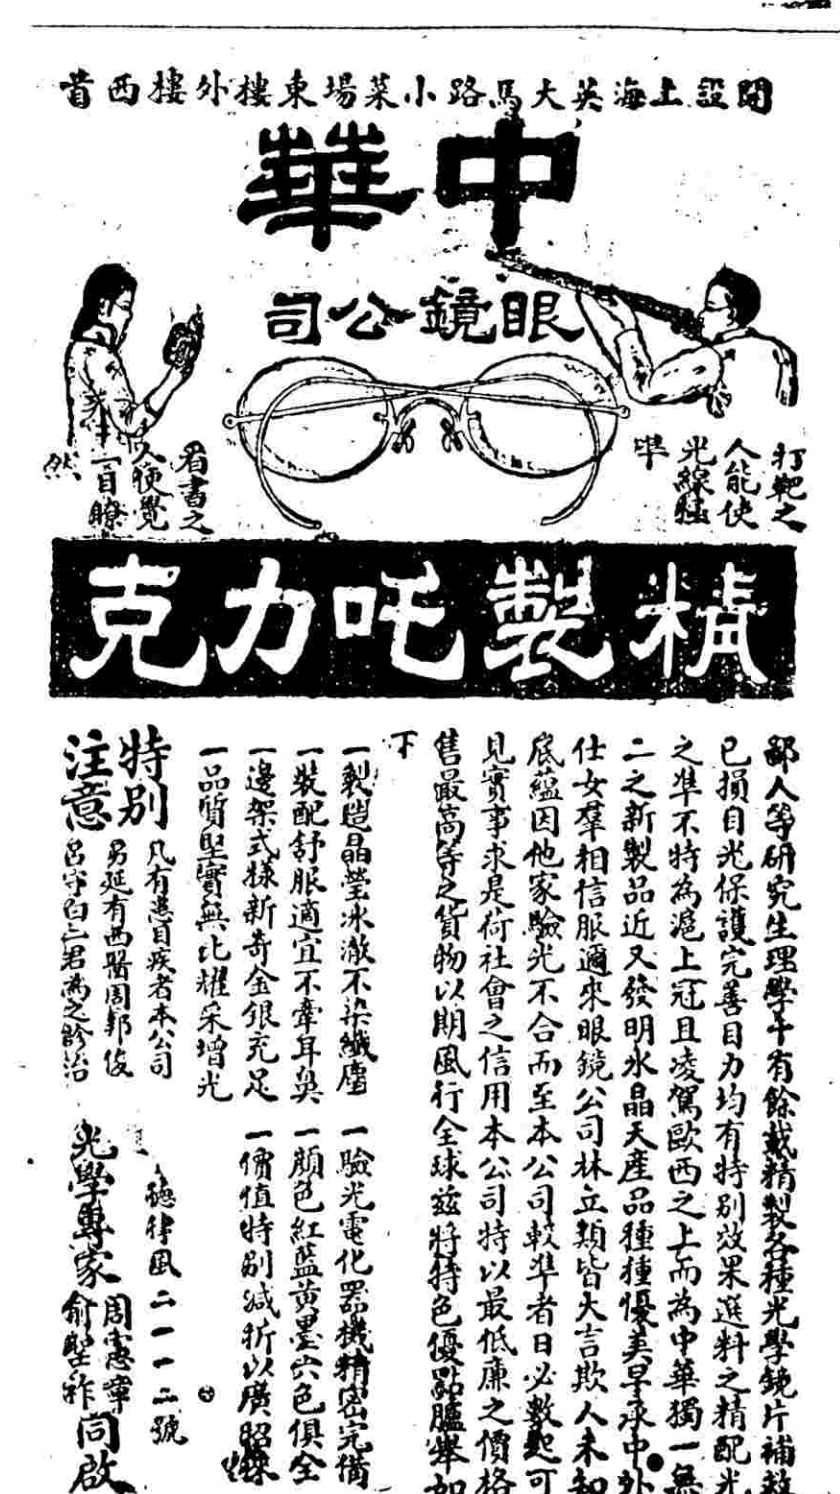 開設上海英大馬路小菜場東樓外樓西首
中華
眼鏡公司
打靶之
人能使
光線
準
看書之
人頓覺
一目瞭
然
精製叱力克
鄙人等研究生理學十有餘載精製各種光學鏡片補救
已損目光保護完善目力均有特別效果選料之精配光
之準不特為滬上冠且凌駕歐西之上而為中華獨一無
二之新製品近又發明水晶天產品種種優美早承中外
仕女羣相信服邇來眼鏡公司林立類皆大言欺人未知
底蘊因他家驗光不合而至本公司較準者日必數起可
見實事求是荷社會之信用本公司特以最低廉之價格
售最高等之貨物以期風行全球茲將特色優點臚舉如
下
一製造晶瑩冰澈不染纖塵
一驗光電化器機精密完備
一裝配舒服適宜不牽耳鼻
一顏色紅藍黃墨六色俱全
一邊架式樣新奇金銀充足
一價值特別減折以廣招徠
一品質堅實無比耀采增光
特別
注意
凡有患目疾者本公司
另延有西醫周邦俊
呂守白二君為之診治
德律風二一一二號
光學專家
周憲章
俞堅祚
同啟